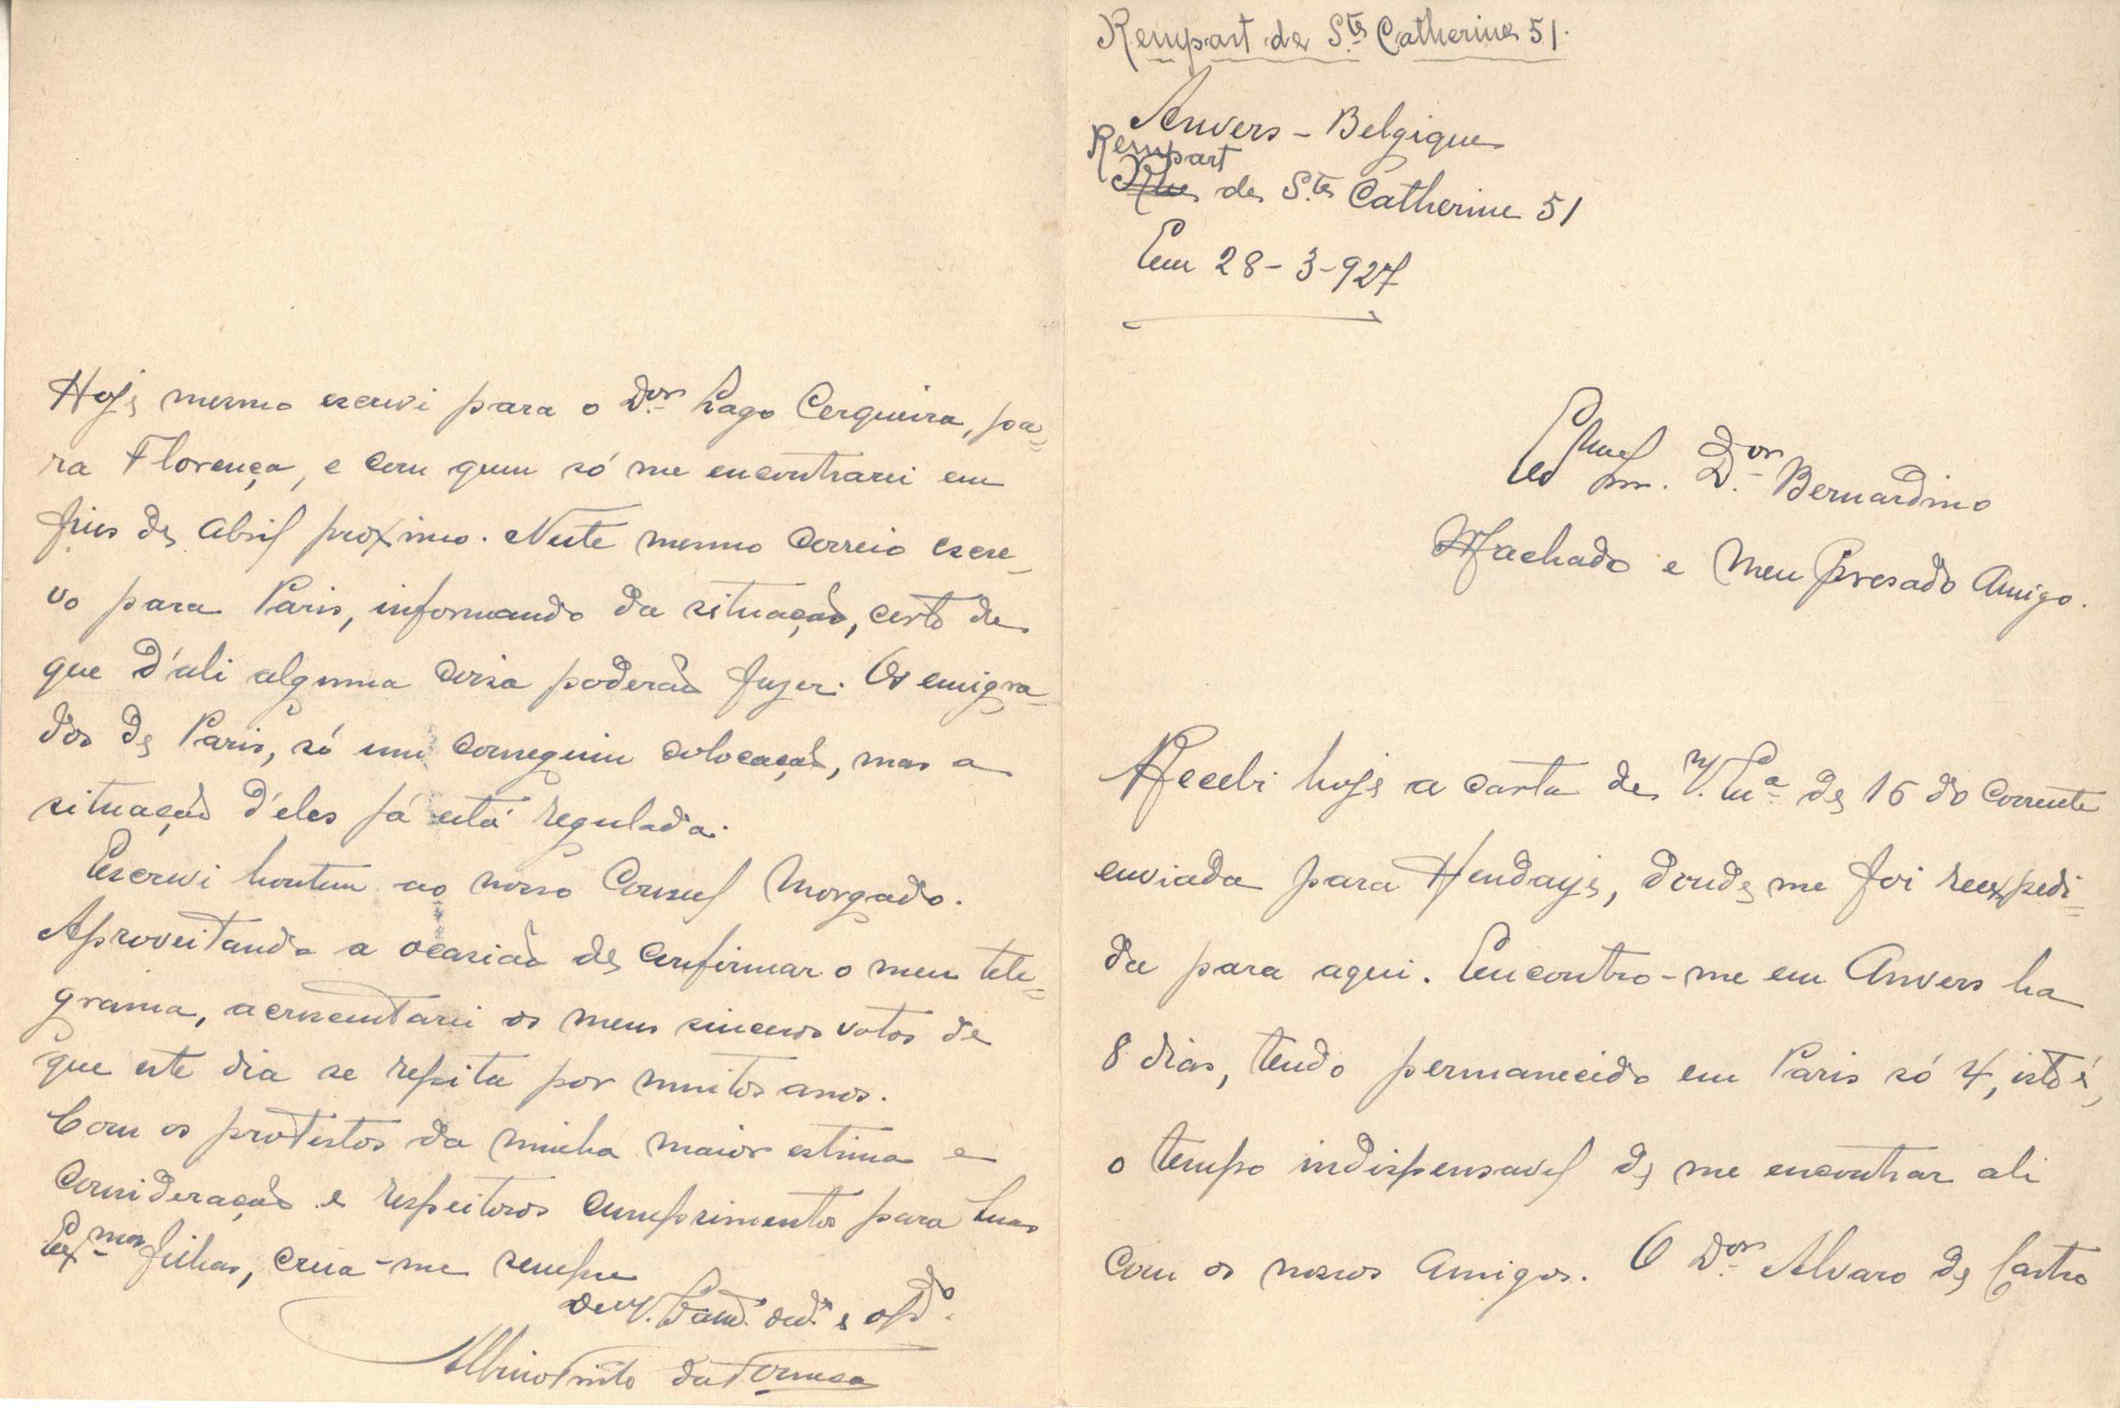 Rempart de S.te Catherine 51.
Anvers - Belgique
Rempart
Rue de S.te Catherine 51
Em 28-3-927
Exmo Snr. D.or Bernardino
Machado e Meu Presado Amigo.
Recebi hoje a carta de V. Ex.a de 16 do corrente
enviada para Hendaye, donde me foi reexpedi=
da para aqui. Encontro-me em Anvers ha
8 dias, tendo permanecido em Paris só 4, isto é,
o tempo indispensavel de me encontrar ali
com os nossos Amigos. O D.or Alvaro de Castro
Hoje mesmo escrevi para o D.or Lago Cerqueira, pa=
ra Florença, e com quem só me encontrarei em
fins de Abril proximo. Neste mesmo correio escre-
vo para Paris, informando da situação, certo de
que d'ali alguma coisa poderão fazer. Os emigra-
dos de Paris, só um conseguiu colocação, mas a
situação d'eles já está regulada.
Escrevi hontem ao nosso Consul Morgado.
Aproveitando a ocasião de confirmar o meu tele=
grama, acrescentarei os meus sinceros votos de
que este dia se repita por muitos anos.
Com os protestos da minha maior estima e
consideração e respeitosos cumprimentos para Suas
Ex.mas filhas, creia-me sempre
de V. e
Albino Pinto da Fonseca